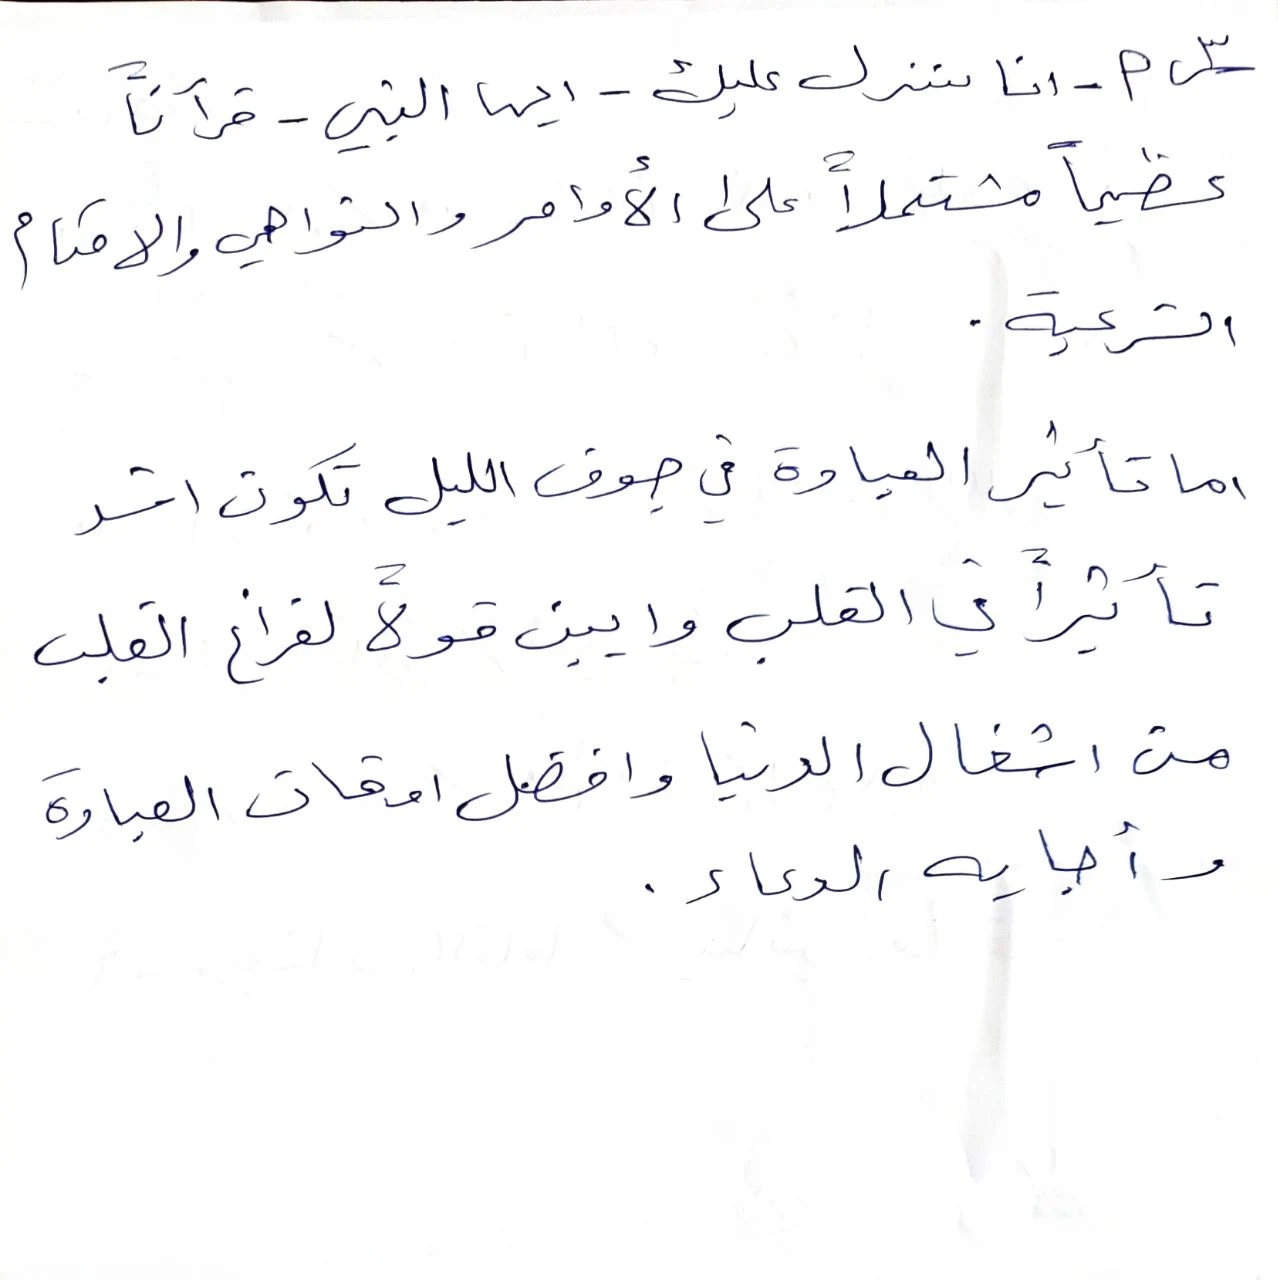 س٣ م - انا سننزل عليك - ايها النبي - قرآناً
عظيماً مشتملاً على الأوامر والنواهي والاحكام
الشرعية .
اما تأثير العبادة في جوف الليل تكون اشد
تأثيراً في القلب وابين قولاً لفراغ القلب
من اشغال الدنيا وافضل اوقات العبادة
وأجابه الدعاء .